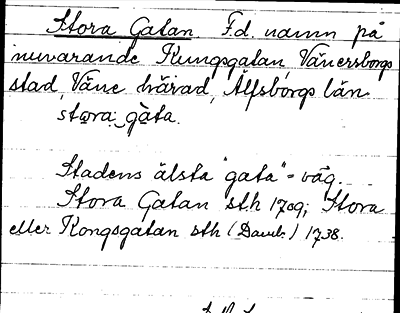 Stora Gatan. F.d. namn på
nuvarande Kungsgatan, Vänersborgs
stad, Väne härad, Älfsborgs län.
stora gata.
Stadens älsta "gata" = väg.
Stora Gatan sth 1709; Stora
eller Kongsgatan sth (Daub.) 1738.